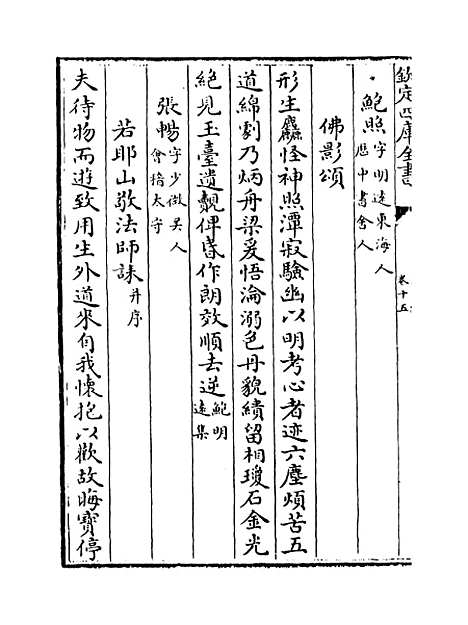 欽定四庫全書
卷十五
鮑照字明遠東海人
歴中書舍人
佛影頌
形生麤怪神照潭寂驗幽以明考心者迹六塵煩苦五
道綿劇乃炳舟梁爰悟淪溺色丹貌績留相瓊石金光
絶見玉臺遺覿俾昏作朗效順去逆鮑明
遠集
張暢字少微吴人
會稽太守
若耶山敬法師誄并序
夫待物而遊致用生外道來自我懷抱以歡故晦寶停